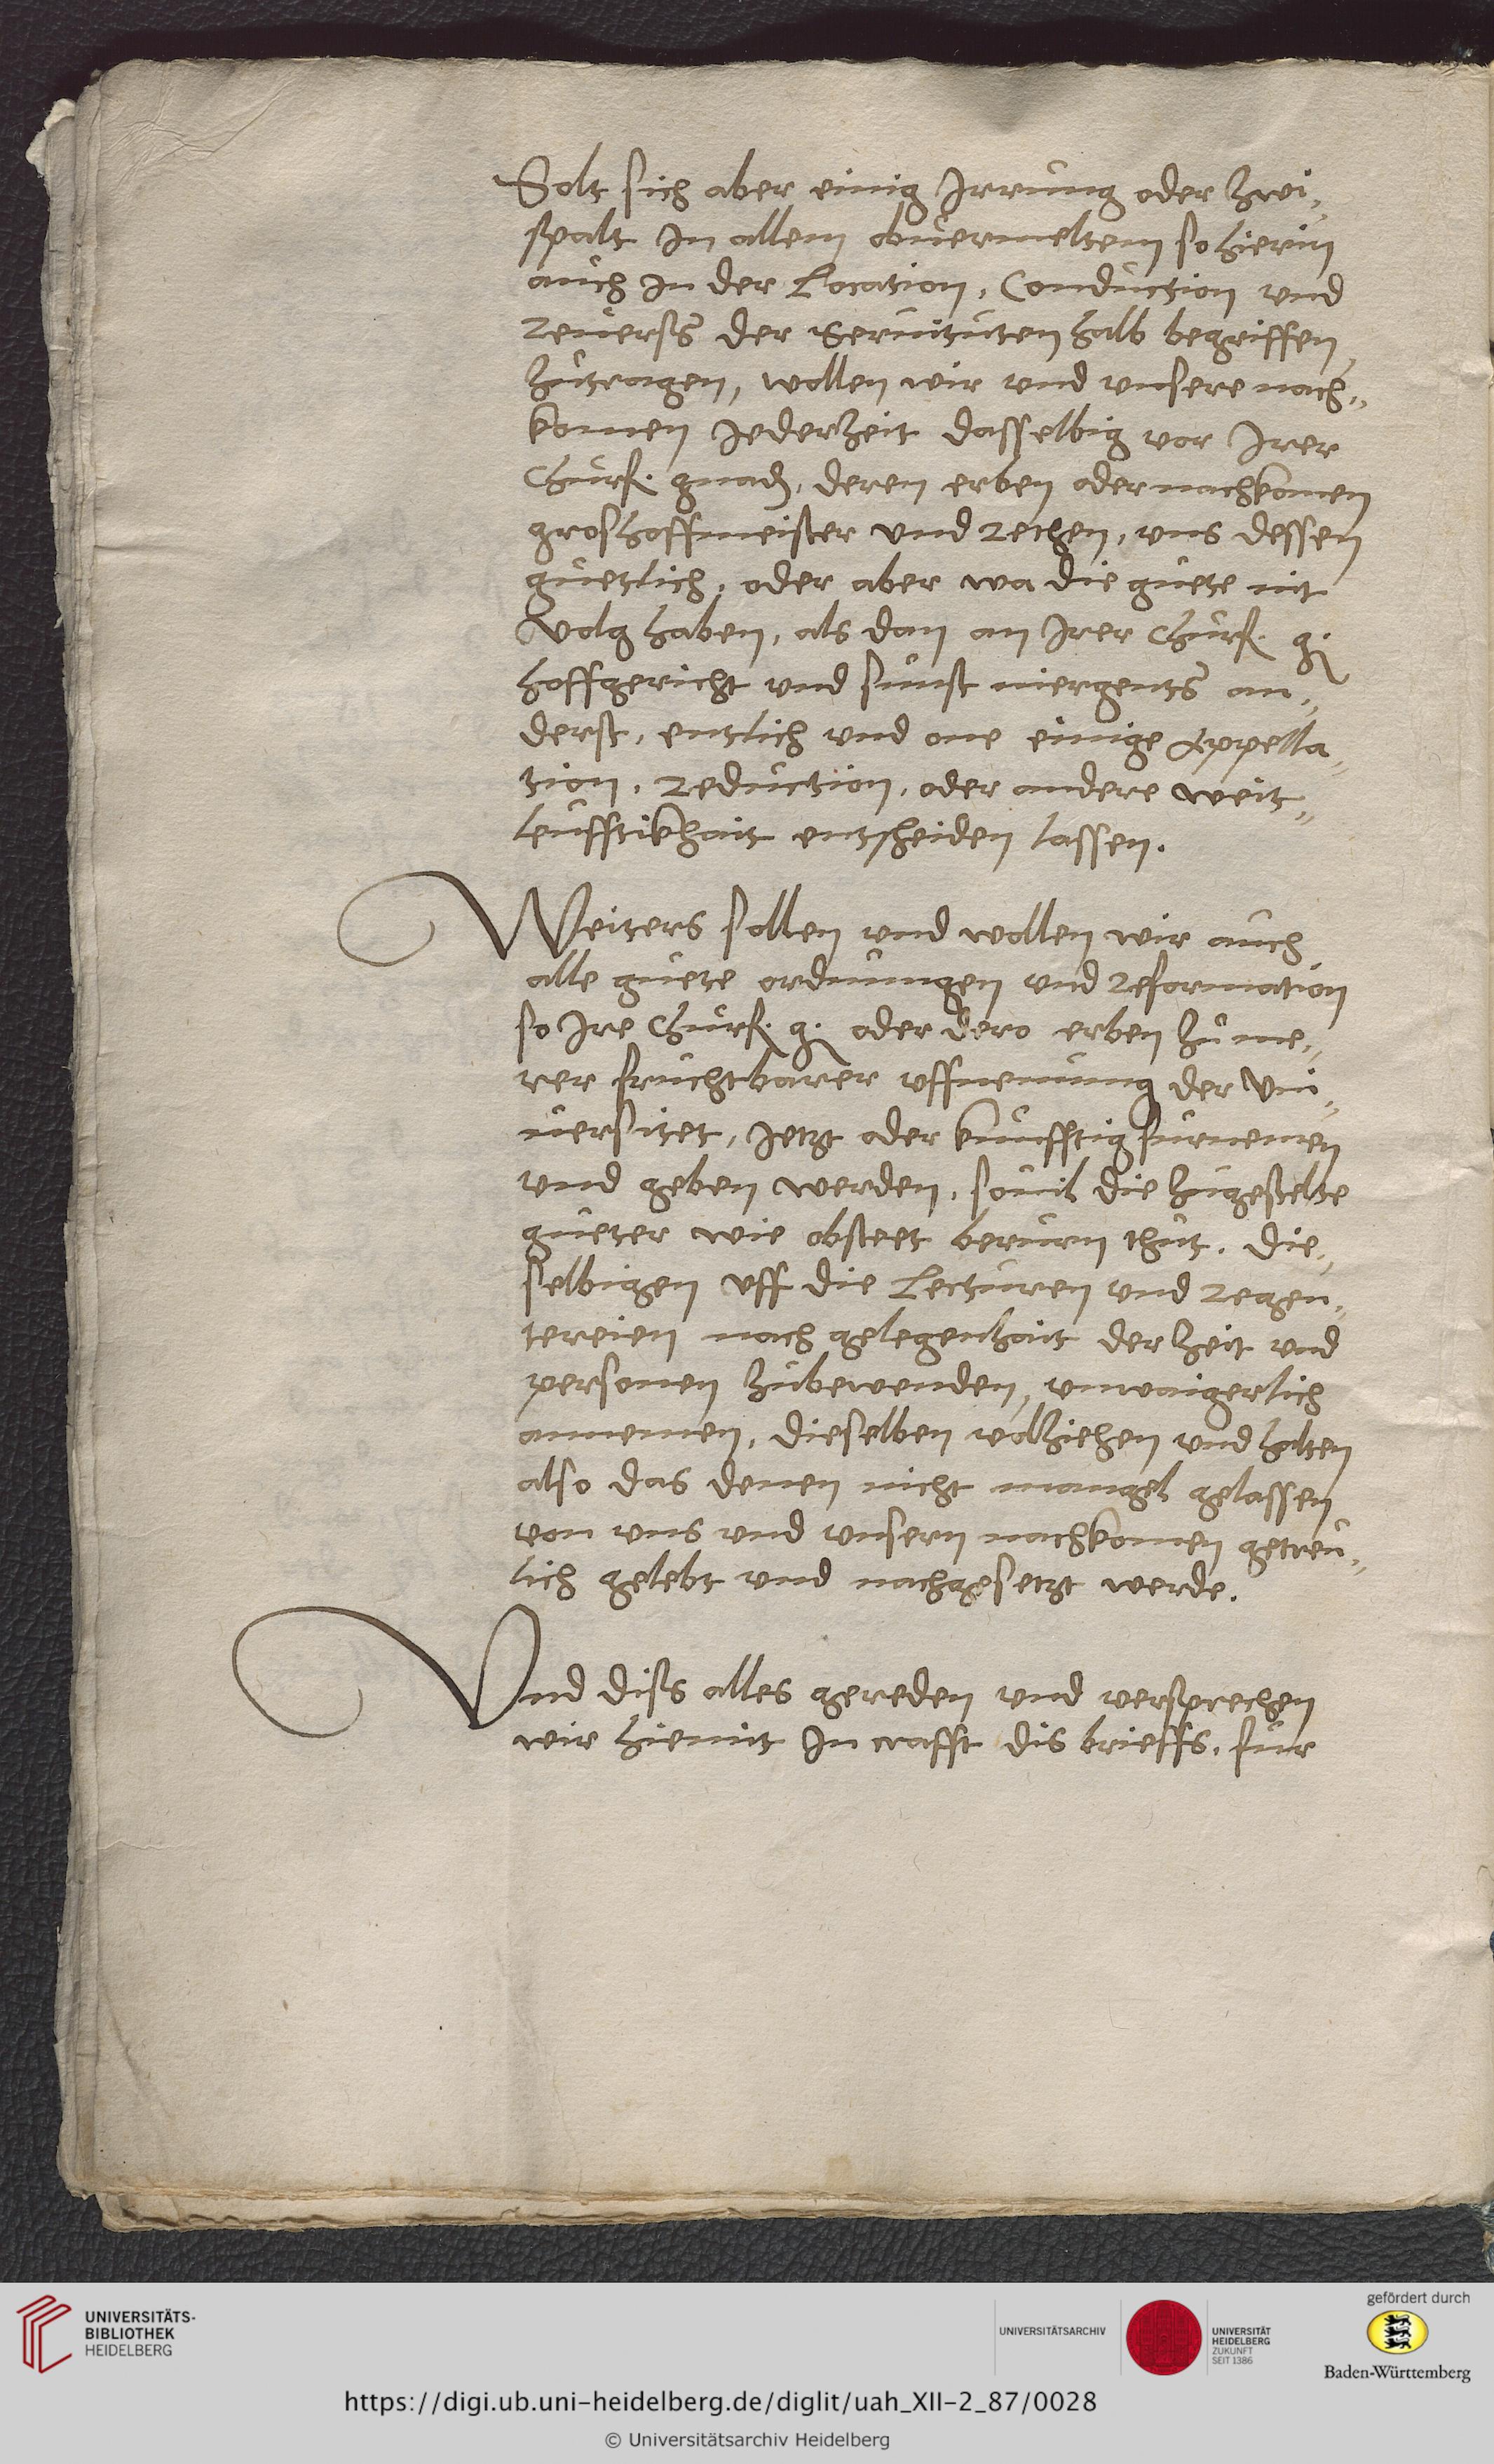 Solt sich aber einig Irrung oder Zwi„
spalt In allem obuermeltem so hierin
auch In der Location, Conduction und
Reuerss der Seruituten halb begriffen
zutragen, wollen wir und unsere nach„
komen Jederzeit dasselbig vor Irer
Churf. gnad, deren erben oder nachkomen
groshoffmeister und Rethen, uns dessen
guetlich, oder aber wa die guete nit
Volg haben, als dan an Irer Churf. g.
hoffgericht und sunst niergents an„
derst, entlich und one einige Appella„
tion, Reduction, oder andere weit„
leufftikhait entscheiden lassen.
Weiters sollen und wollen wir auch
alle guete ordnungen und Reformation
so Ire Churf. g. oder dero erben zu me„
rer fruchtbarer uffnemung der Vni„
uersitet, Jetzt oder kunfftig furnemen
und geben werden, souil die zugestelte
gueter wie obsteet berurn thut, die„
selbigen uff die Lecturen und Regen„
tereien nach gelegenhait der Zeit und
personen zubewenden, unwaigerlich
annemen, dieselben volziehen und halten
also das denen nicht mangel gelassen
von uns und unsern nachkomen getreu„
lich gelebt und nachgesetzt werde.
Vnd diss alles gereden und versprechen
wir hiemit In crafft dis brieffs, fur
UNIVERSITÄTS-
BIBLIOTHEK
HEIDELBERG
UNIVERSITÄTSARCHIV
UNIVERSITÄT
HEIDELBERG
ZUKUNFT
SEIT 1386
gefördert durch
Baden-Württemberg
https://digi.ub.uni-heidelberg.de/diglit/uah_XII-2_87/0028
© Universitätsarchiv Heidelberg